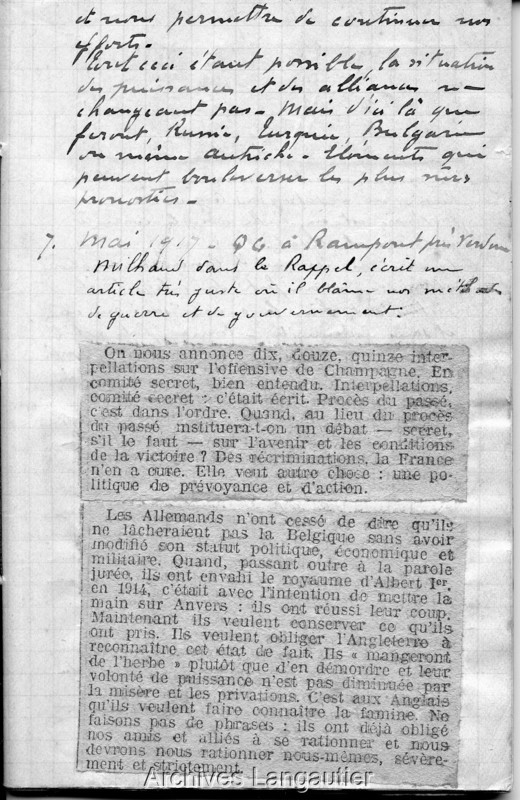 et nous permettre de continuer nos
efforts.
Tout ceci étant possible, la situation
des puissances et des alliances ne
changeant pas. Mais d'ici là que
feront, Russie, Turquie, Bulgarie
ou même Autriche. Eléments qui
peuvent bouleverser les plus sûrs
pronostics.
7. Mai 1917. QG à Rampont près Verdun
Milhaud dans le Rappel, écrit un
article très juste où il blâme nos méthodes
de guerre et de gouvernement.
On nous annonce dix, douze, quinze inter-
pellations sur l'offensive de Champagne. En
comité secret, bien entendu. Interpellations,
comité secret : c'était écrit. Procès du passé,
c'est dans l'ordre. Quand, au lieu du procès
du passé instituera-t-on un débat — secret,
s'il le faut — sur l'avenir et les conditions
de la victoire ? Des récriminations, la France
n'en a cure. Elle veut autre chose : une po-
litique de prévoyance et d'action.
Les Allemands n'ont cessé de dire qu'ils
ne lâcheraient pas la Belgique sans avoir
modifié son statut politique, économique et
militaire. Quand, passant outre à la parole
jurée, ils ont envahi le royaume d'Albert Ier
en 1914, c'était avec l'intention de mettre la
main sur Anvers : ils ont réussi leur coup.
Maintenant ils veulent conserver ce qu'ils
ont pris. Ils veulent obliger l'Angleterre à
reconnaître cet état de fait. Ils « mangeront
de l'herbe » plutôt que d'en démordre et leur
volonté de puissance n'est pas diminuée par
la misère et les privations. C'est aux Anglais
qu'ils veulent faire connaître la famine. Ne
faisons pas de phrases : ils ont déjà obligé
nos amis et alliés à se rationner et nous
devrons nous rationner nous-mêmes, sévère-
ment et strictement.
Archives Langautier